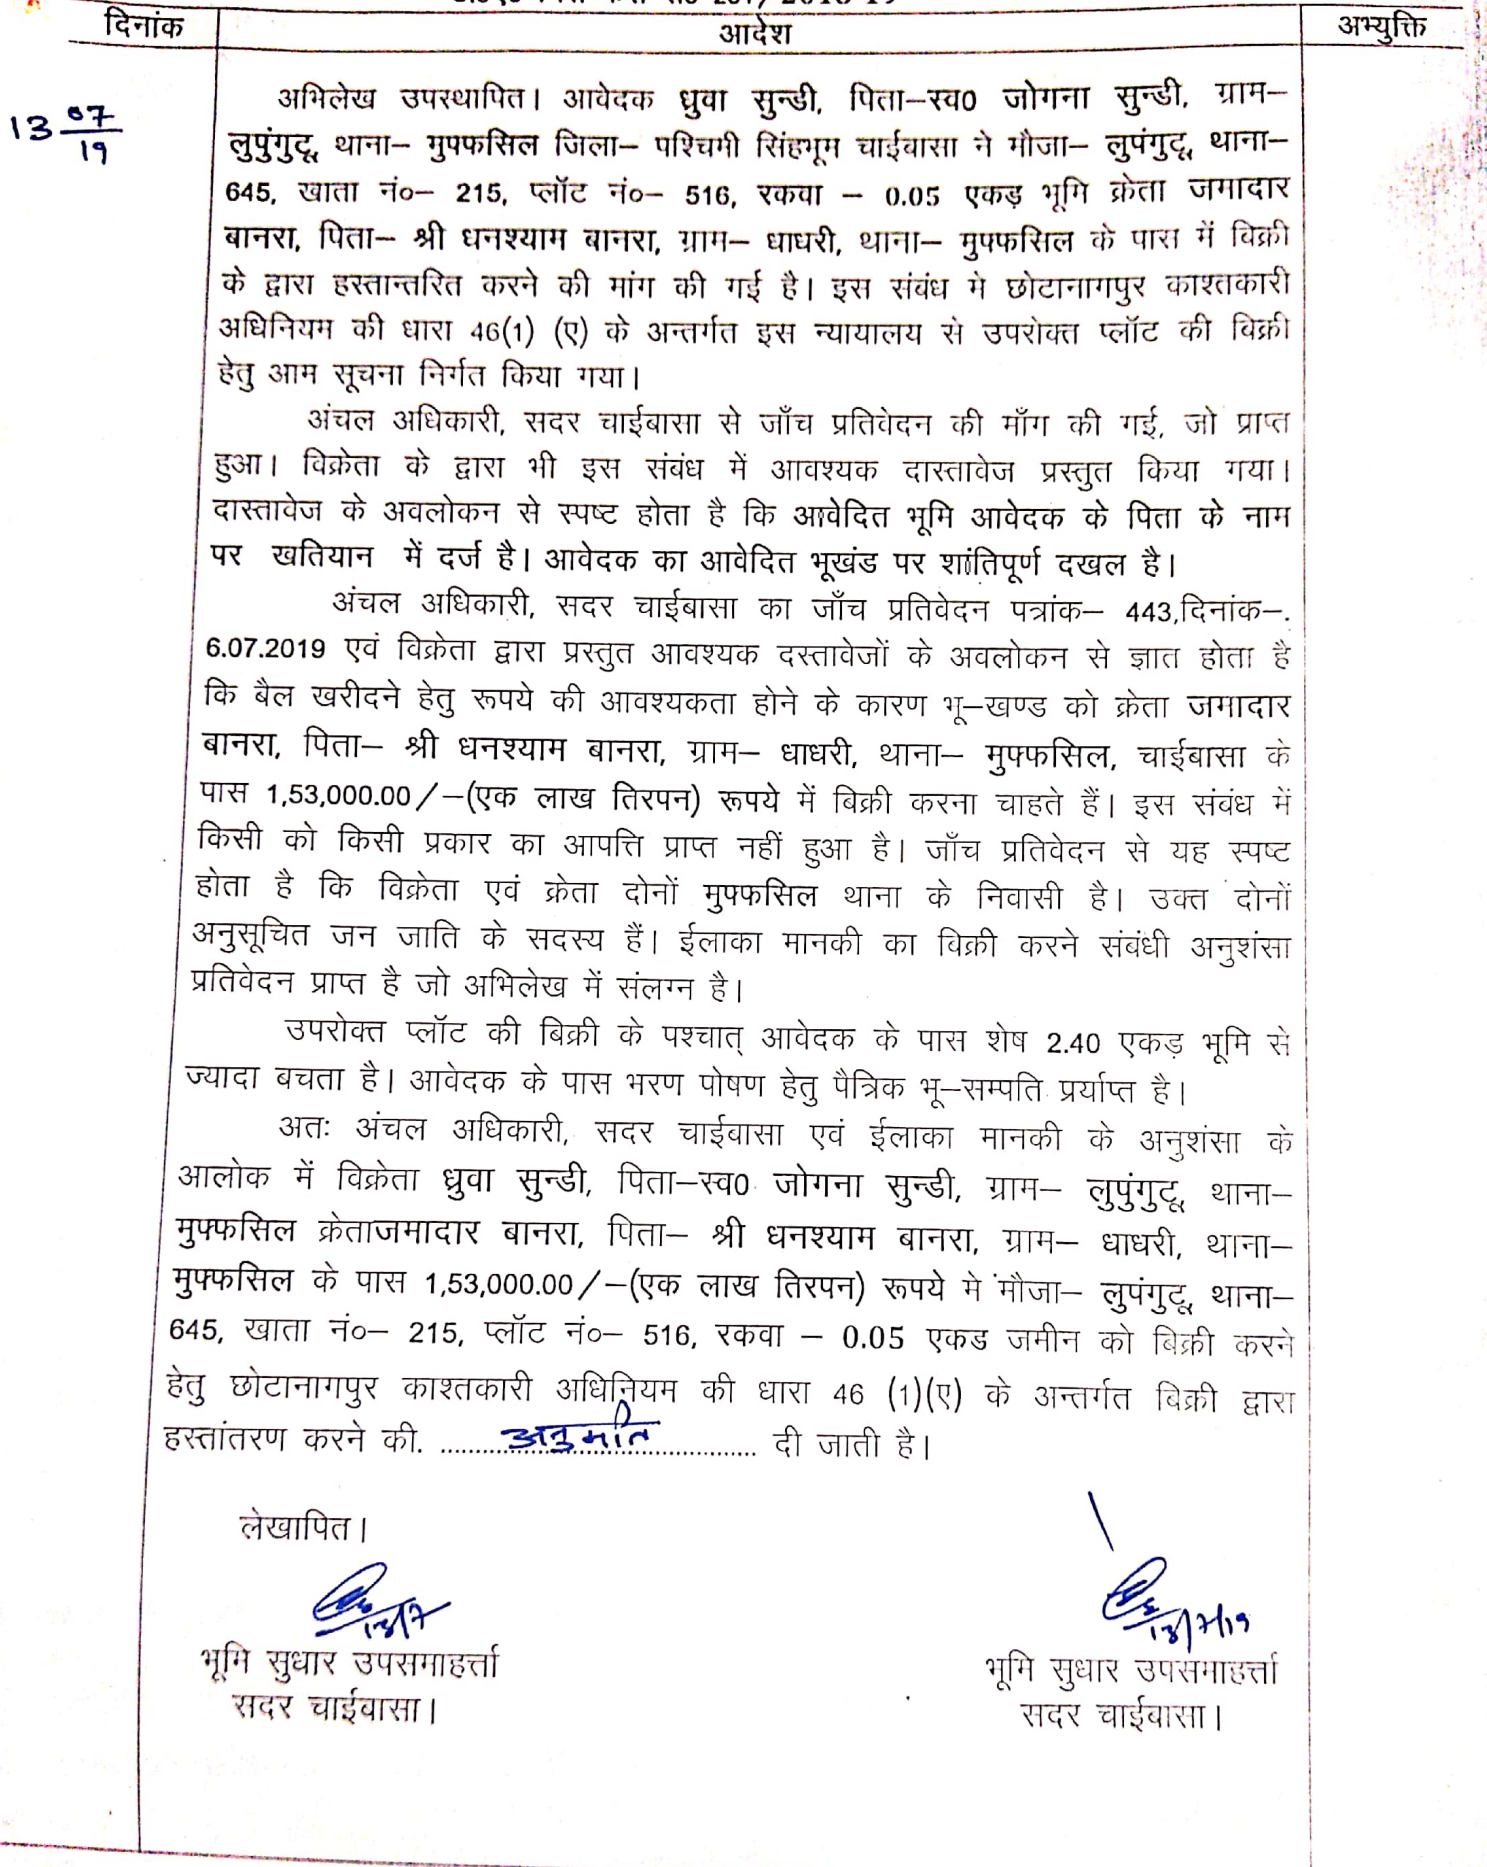 दिनांक आदेश अभ्युक्ति
13 07/19
अभिलेख उपस्थापित। आवेदक ध्रुवा सुन्डी, पिता–स्व0 जोगना सुन्डी, ग्राम–
लुपुंगुटू, थाना– मुफ्फसिल जिला– पश्चिमी सिंहभूम चाईबासा ने मौजा– लुपंगुटू, थाना–
645, खाता नं०– 215, प्लॉट नं०– 516, रकवा – 0.05 एकड़ भूमि क्रेता जमादार
बानरा, पिता– श्री धनश्याम बानरा, ग्राम– धाधरी, थाना– मुफ्फसिल के पास में विक्री
के द्वारा हस्तान्तरित करने की मांग की गई है। इस संबंध मे छोटानागपुर काश्तकारी
अधिनियम की धारा 46(1) (ए) के अन्तर्गत इस न्यायालय से उपरोक्त प्लॉट की बिक्री
हेतु आम सूचना निर्गत किया गया।
अंचल अधिकारी, सदर चाईबासा से जाँच प्रतिवेदन की माँग की गई, जो प्राप्त
हुआ। विक्रेता के द्वारा भी इस संबंध में आवश्यक दास्तावेज प्रस्तुत किया गया।
दास्तावेज के अवलोकन से स्पष्ट होता है कि आवेदित भूमि आवेदक के पिता के नाम
पर खतियान में दर्ज है। आवेदक का आवेदित भूखंड पर शांतिपूर्ण दखल है।
अंचल अधिकारी, सदर चाईबासा का जाँच प्रतिवेदन पत्रांक– 443,दिनांक–.
6.07.2019 एवं विक्रेता द्वारा प्रस्तुत आवश्यक दस्तावेजों के अवलोकन से ज्ञात होता है
कि बैल खरीदने हेतु रूपये की आवश्यकता होने के कारण भू–खण्ड को क्रेता जमादार
बानरा, पिता– श्री धनश्याम बानरा, ग्राम– धाधरी, थाना– मुफ्फसिल, चाईबासा के
पास 1,53,000.00/–(एक लाख तिरपन) रूपये में बिक्री करना चाहते हैं। इस संबंध में
किसी को किसी प्रकार का आपत्ति प्राप्त नहीं हुआ है। जाँच प्रतिवेदन से यह स्पष्ट
होता है कि विक्रेता एवं क्रेता दोनों मुफ्फसिल थाना के निवासी है। उक्त दोनों
अनुसूचित जन जाति के सदस्य हैं। ईलाका मानकी का विक्री करने संबंधी अनुशंसा
प्रतिवेदन प्राप्त है जो अभिलेख में संलग्न है।
उपरोक्त प्लॉट की बिक्री के पश्चात् आवेदक के पास शेष 2.40 एकड़ भूमि से
ज्यादा बचता है। आवेदक के पास भरण पोषण हेतु पैत्रिक भू–सम्पति प्रर्याप्त है।
अतः अंचल अधिकारी, सदर चाईबासा एवं ईलाका मानकी के अनुशंसा के
आलोक में विक्रेता ध्रुवा सुन्डी, पिता–स्व0 जोगना सुन्डी, ग्राम– लुपुंगुटू, थाना–
मुफ्फसिल क्रेताजमादार बानरा, पिता– श्री धनश्याम बानरा, ग्राम– धाधरी, थाना–
मुफ्फसिल के पास 1,53,000.00/–(एक लाख तिरपन) रूपये मे मौजा– लुपंगुटू, थाना–
645, खाता नं०– 215, प्लॉट नं०– 516, रकवा – 0.05 एकड जमीन को बिक्री करने
हेतु छोटानागपुर काश्तकारी अधिनियम की धारा 46 (1)(ए) के अन्तर्गत बिक्री द्वारा
हस्तांतरण करने की. ........अनुमति........ दी जाती है।
लेखापित।
13/7 13/7/19
भूमि सुधार उपसमाहर्त्ता भूमि सुधार उपसमाहर्त्ता
सदर चाईबासा। सदर चाईबासा।